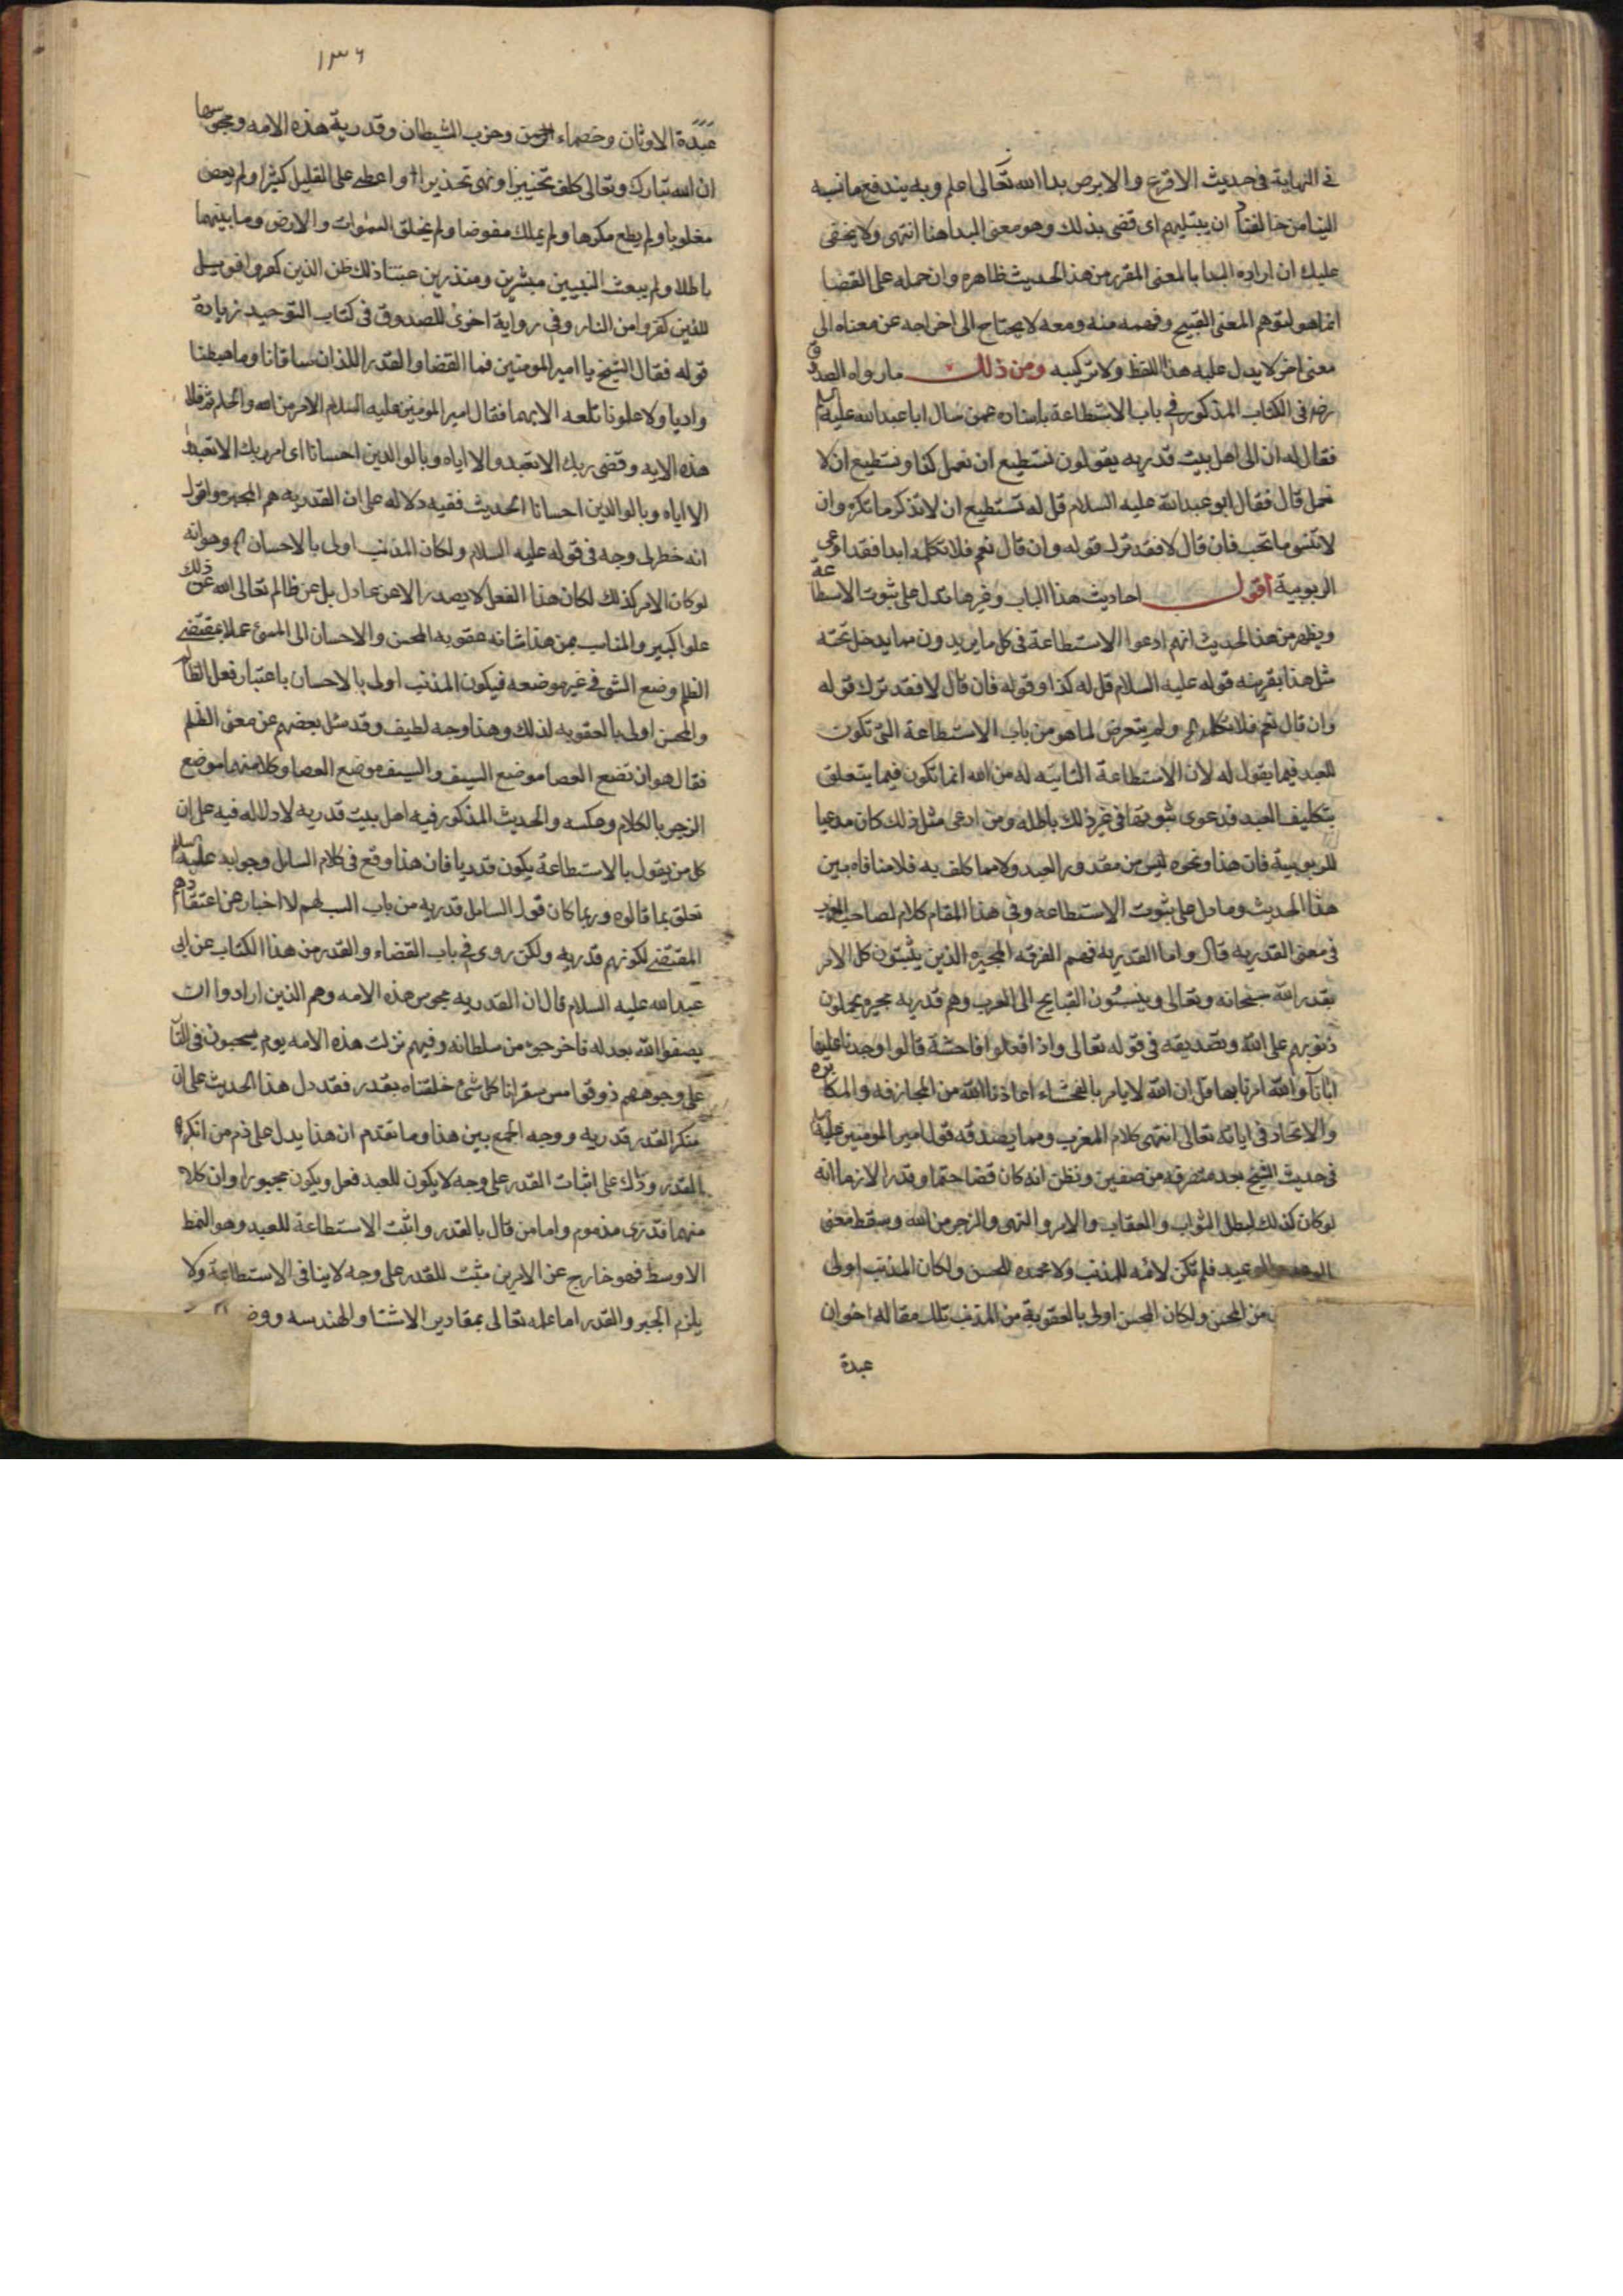 في النهاية في حديث الاقرع والابرص بدا الله تعالى اعلم وبه يندفع ما نسبه
الينا من خالفنا ان يبتليهم اى قضى بذلك وهو معنى البدا هنا انتهى ولا يخفى
عليك ان ارادة البدا بالمعنى المقرر من هذا الحديث ظاهره وان حمله على القضا
انما هو لتوهم المعنى القبيح وفهمه منه ومعه لا يحتاج الى اخراجه عن معناه الى
معنى اخر لا يدل عليه هذا اللفظ ولا تركيبه ومن ذلك ما رواه الصدوق
رضه في الكتاب المذكور في باب الاستطاعة باسناده عمن سال ابا عبد الله عليه السلم
فقال له ان لى اهل بيت قدريه يقولون نستطيع ان نعمل كذا ونستطيع ان لا
نعمل قال فقال ابو عبد الله عليه السلام قل له تستطيع ان لا تذكر ما تكره وان
لا تنسى ما تحب فان قال لا فقد ترك قوله وان قال نعم فلا تكلمه ابدا فقد ادعى
الربوبية اقول احاديث هذا الباب وغيرها تدل على ثبوت الاستطاعة
ويظهر من هذا الحديث انهم ادعوا الاستطاعة في كل ما يريدون مما يدخل تحته
مثل هذا بقرينه قوله عليه السلام قل له كذا وقوله فان قال لا فقد ترك قوله
وان قال نعم فلا تكلمه ولم يتعرض لما هو من باب الاستطاعة التى تكون
للعبد فيما يقول له لان الاستطاعة الثابتة له من الله انما تكون فيما يتعلق
بتكليف العبد فدعوى ثبوتها في غير ذلك باطله ومن ادعى مثل ذلك كان مدعيا
للربوبية فان هذا ونحوه ليس من مقدور العبد ولا مما كلف به فلا منافاه بين
هذا الحديث وما دل على ثبوت الاستطاعه وفي هذا المقام كلام لصاحب المغرب
في معنى القدريه قال واما القدريه فهم الفرقه المجبره الذين يثبتون كل الامر
بقدر الله سبحانه وتعالى وينسبون القبايح الى العرب وهم قدريه مجبره يحملون
ذنوبهم على الله وتصديقه في قوله تعالى واذا فعلوا فاحشة قالوا وجدنا عليها
اباءنا والله امرنا بها قل ان الله لا يامر بالفحشاء اعاذنا الله من المجازفه والمكابره
والالحاد في اياته تعالى انتهى كلام المغرب ومما يصدقه قول امير المومنين عليه السلم
في حديث الشيخ بعد منصرفه من صفين وتظن انه كان قضا حتما وقدرا لازما انه
لو كان كذلك لبطل الثواب والعقاب والامر والنهى والزجر من الله وسقط معنى
الوعد والوعيد فلم تكن لائمه للمذنب ولا محمده للمحسن ولكان المذنب اولى
من المحسن ولكان المحسن اولى بالعقوبة من المذنب تلك مقالة اخوان
عبدة
١٣٦
عبدة الاوثان وخصماء الرحمن وحزب الشيطان وقدرية هذه الامه ومجوسها
ان الله تبارك وتعالى كلف تخييرا ونهى تحذيرا واعطى على القليل كثيرا ولم يعص
مغلوبا ولم يطع مكرها ولم يملك مفوضا ولم يخلق السموات والارض وما بينهما
باطلا ولم يبعث النبيين مبشرين ومنذرين عبثا ذلك ظن الذين كفروا فويل
للذين كفروا من النار وفي رواية اخرى للصدوق في كتاب التوحيد زيادة
قوله فقال الشيخ يا امير المومنين فما القضا والقدر اللذان ساقانا وما هبطنا
واديا ولا علونا تلعه الا بهما فقال امير المومنين عليه السلام الامر من الله والحكم ثم تلا
هذه الايه وقضى ربك الا تعبدوا الا اياه وبالوالدين احسانا اى امر ربك الا تعبدوا
الا اياه وبالوالدين احسانا الحديث ففيه دلاله على ان القدريه هم المجبره واقول
انه خطر لى وجه في قوله عليه السلام ولكان المذنب اولى بالاحسان وهو انه
لو كان الامر كذلك لكان هذا الفعل لا يصدر الا عن عادل بل عن ظالم تعالى الله عن ذلك
علوا كبيرا والمناسب بمن هذا شانه عقوبه المحسن والاحسان الى المسئ عملا بمقتضى
الظلم وضع الشى في غير موضعه فيكون المذنب اولى بالاحسان باعتبار فعل الظالم
والمحسن اولى بالعقوبه لذلك وهذا وجه لطيف وقد سئل بعضهم عن معنى الظلم
فقال هو ان تضع العصا موضع السيف والسيف موضع العصا وكلا منهما موضع
الزجر بالكلام وعكسه والحديث المذكور فيه اهل بيت قدريه لا دلاله فيه على ان
كل من يقول بالاستطاعة يكون قدريا فان هذا وقع في كلام السايل وجوابه عليه السلم
تعلق بما قالوه وربما كان قول السايل قدريه من باب السب لهم لا اخبار عن اعتقادهم
المقتضى لكونهم قدريه ولكن روى في باب القضاء والقدر من هذا الكتاب عن ابى
عبد الله عليه السلام قال ان القدريه مجوس هذه الامه وهم الذين ارادوا ان
يصفوا الله بعدله فاخرجوه من سلطانه وفيهم نزلت هذه الايه يوم يسحبون في النار
على وجوههم ذوقوا مس سقر انا كل شئ خلقناه بقدر فقد دل هذا الحديث على ان
منكر القدر قدريه ووجه الجمع بين هذا وما تقدم ان هذا يدل على ذم من انكره
القدر وذلك على اثبات القدر على وجه لا يكون للعبد فعل ويكون مجبورا وان كلا
منهما قدرى مذموم واما من قال بالقدر واثبت الاستطاعة للعبد وهو النمط
الاوسط فهو خارج عن الامرين مثبت للقدر على وجه لا ينافى الاستطاعة ولا
يلزم الجبر والقدر اما علمه تعالى بمقادير الاشيا والهندسه ووضع